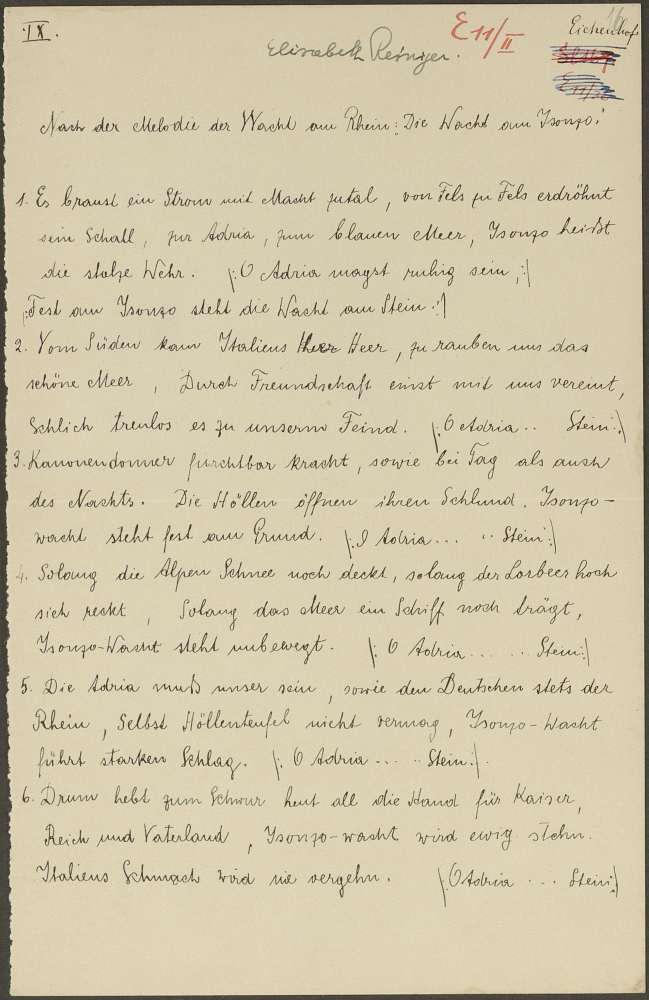 IX.
Elisabeth Reiniger.
E 11/II
Eichenhof
Nach der Melodie der Wacht am Rhein: „Die Wacht am Isonzo."
1. Es braust ein Strom mit Macht zutal, von Fels zu Fels erdröhnt
sein Schall, zur Adria, zum blauen Meer, Isonzo heißt
die stolze Wehr. |: O Adria magst ruhig sein, :|
|: Fest am Isonzo steht die Wacht am Stein :|
2. Vom Süden kam Italiens Heer, zu rauben uns das
schöne Meer, Durch Freundschaft einst mit uns vereint,
Schlich treulos es zu unserm Feind. |: O Adria .. Stein :|
3. Kanonendonner furchtbar kracht, sowie bei Tag als auch
des Nachts. Die Höllen öffnen ihren Schlund. Isonzo-
wacht steht fest am Grund. |: O Adria ... .. Stein :|
4. Solang die Alpen Schnee noch deckt, solang der Lorbeer hoch
sich reckt, Solang das Meer ein Schiff noch trägt,
Isonzo-Wacht steht unbewegt. |: O Adria ...... Stein :|
5. Die Adria muß unser sein, sowie den Deutschen stets der
Rhein, Selbst Höllenteufel nicht vermag, Isonzo-Wacht
führt starken Schlag. |: O Adria ... .. Stein :|.
6. Drum hebt zum Schwur heut all die Hand für Kaiser,
Reich und Vaterland, Isonzo-wacht wird ewig stehn.
Italiens Schmach wird nie vergehn. |: O Adria ... Stein :|